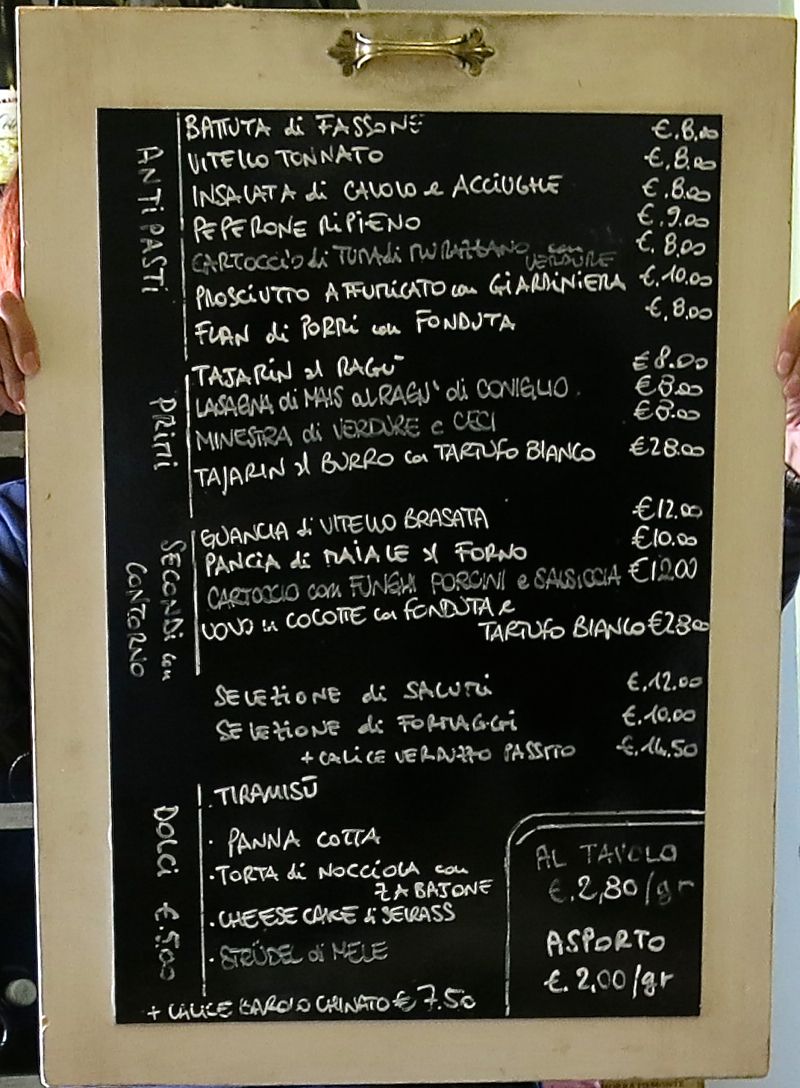 ANTIPASTI
BATTUTA di FASSONE €.8,00
VITELLO TONNATO €.8,00
INSALATA di CAVOLO e ACCIUGHE €.8,00
PEPERONE RIPIENO €.9,00
CARTOCCIO di TUMA di MURAZZANO con VERDURE €.8,00
PROSCIUTTO AFFUMICATO con GIARDINIERA €.10,00
FLAN di PORRI con FONDUTA €.8,00
PRIMI
TAJARIN al RAGU' €8.00
LASAGNA di MAIS al RAGU' di CONIGLIO. €8.00
MINESTRA di VERDURE e CECI €8.00
TAJARIN al BURRO con TARTUFO BIANCO €28.00
SECONDI con
CONTORNO
GUANCIA di VITELLO BRASATA €12.00
PANCIA di MAIALE al FORNO €10.00
CARTOCCIO con FUNGHI PORCINI e SALSICCIA €12.00
UOVO in COCOTTE con FONDUTA e
TARTUFO BIANCO €28.00
SELEZIONE di SALUMI €.12.00
SELEZIONE di FORMAGGI €.10.00
+ CALICE VERDUZZO PASSITO €.14,50
DOLCI €.5.00
. TIRAMISÙ
. PANNA COTTA
. TORTA di NOCCIOLA con
ZABAJONE
. CHEESE CAKE di SEIRASS
. STRÜDEL di MELE
+ CALICE BAROLO CHINATO € 7.50
AL TAVOLO
€.2,80/gr
ASPORTO
€.2,00/gr